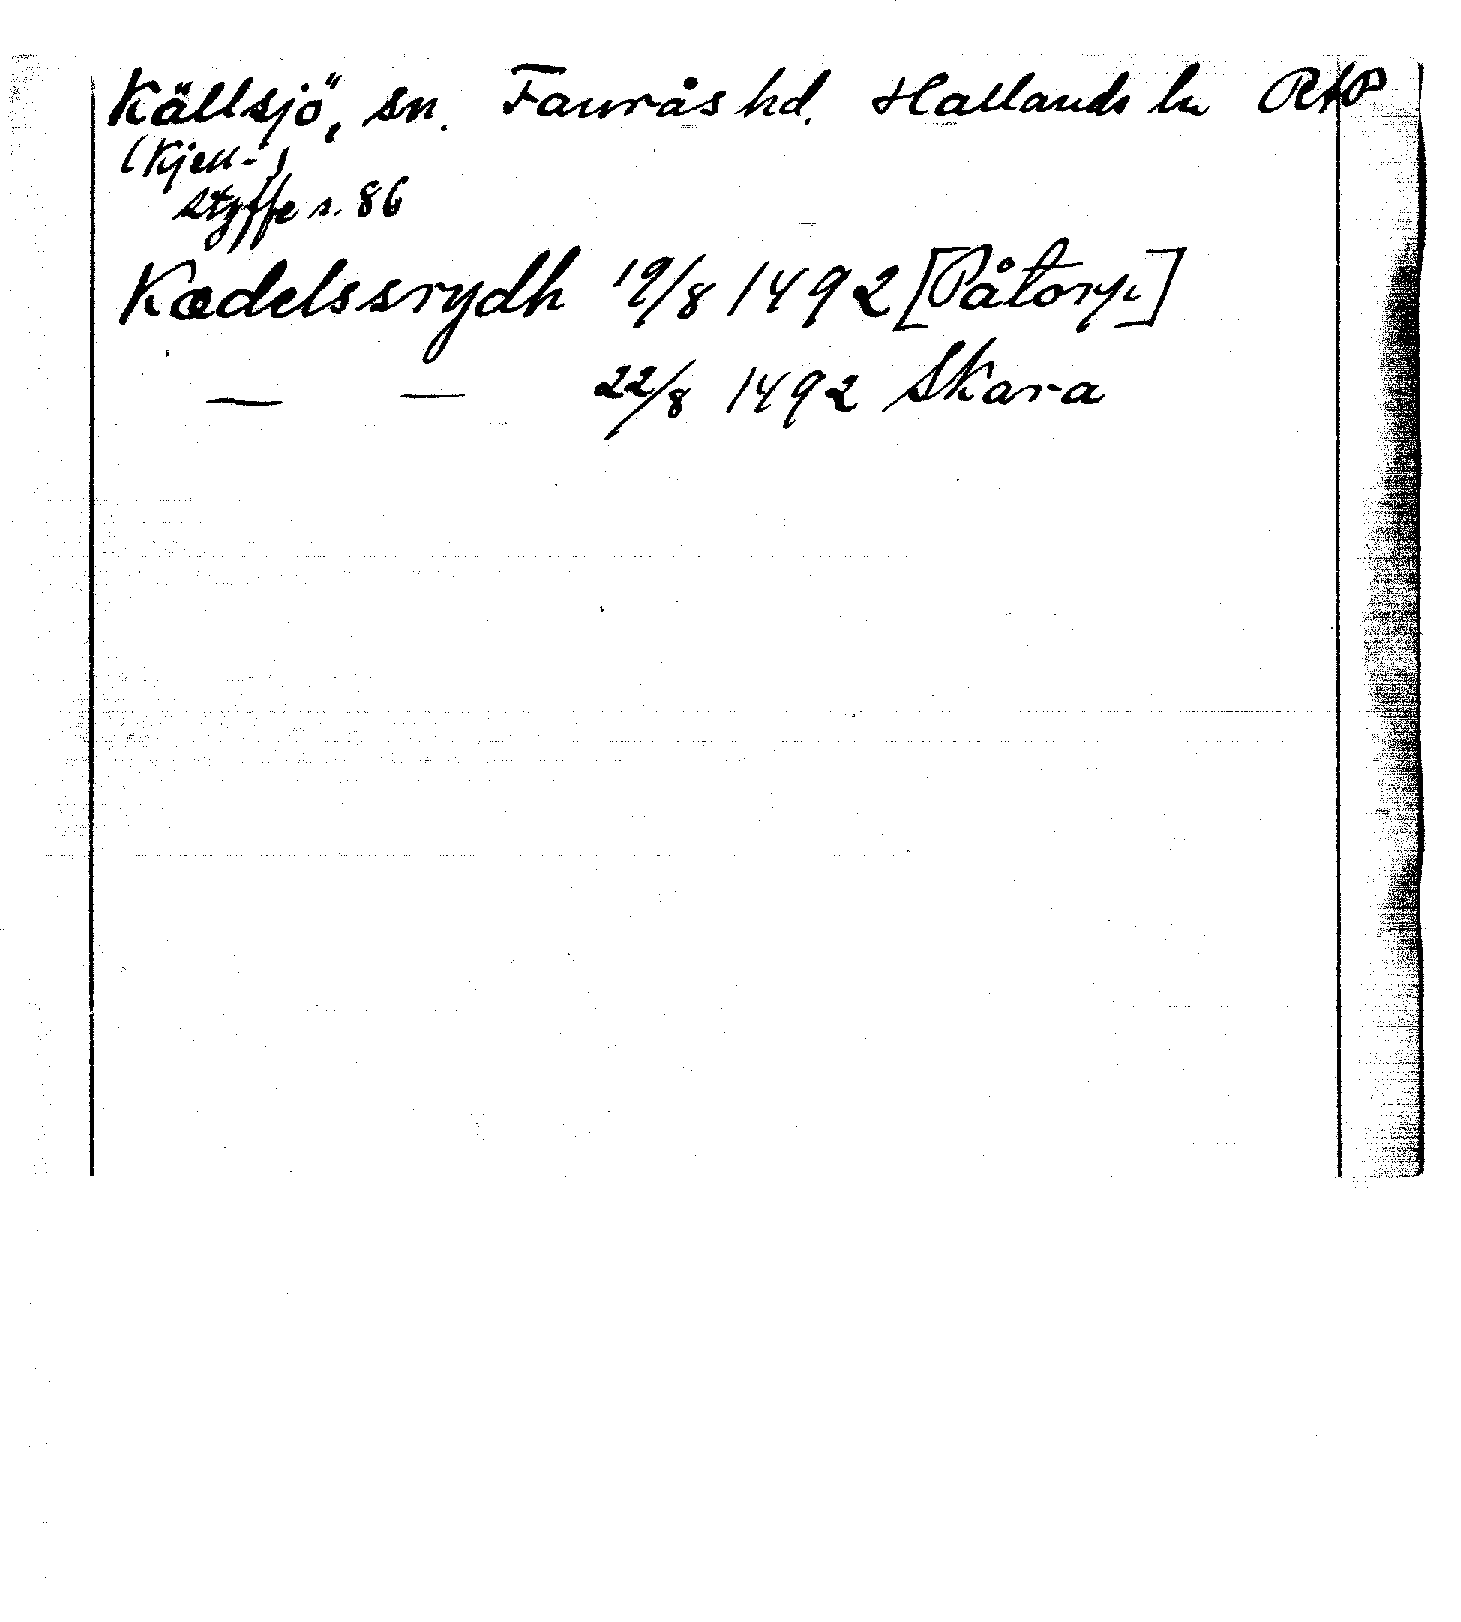 Källsjö, sn. Faurås hd. Hallands ln RAP
(Kjell-)
Styffe s. 86
Kædelssrydh 19/8 1492 [Påtorp]
— — 22/8 1492 Skara